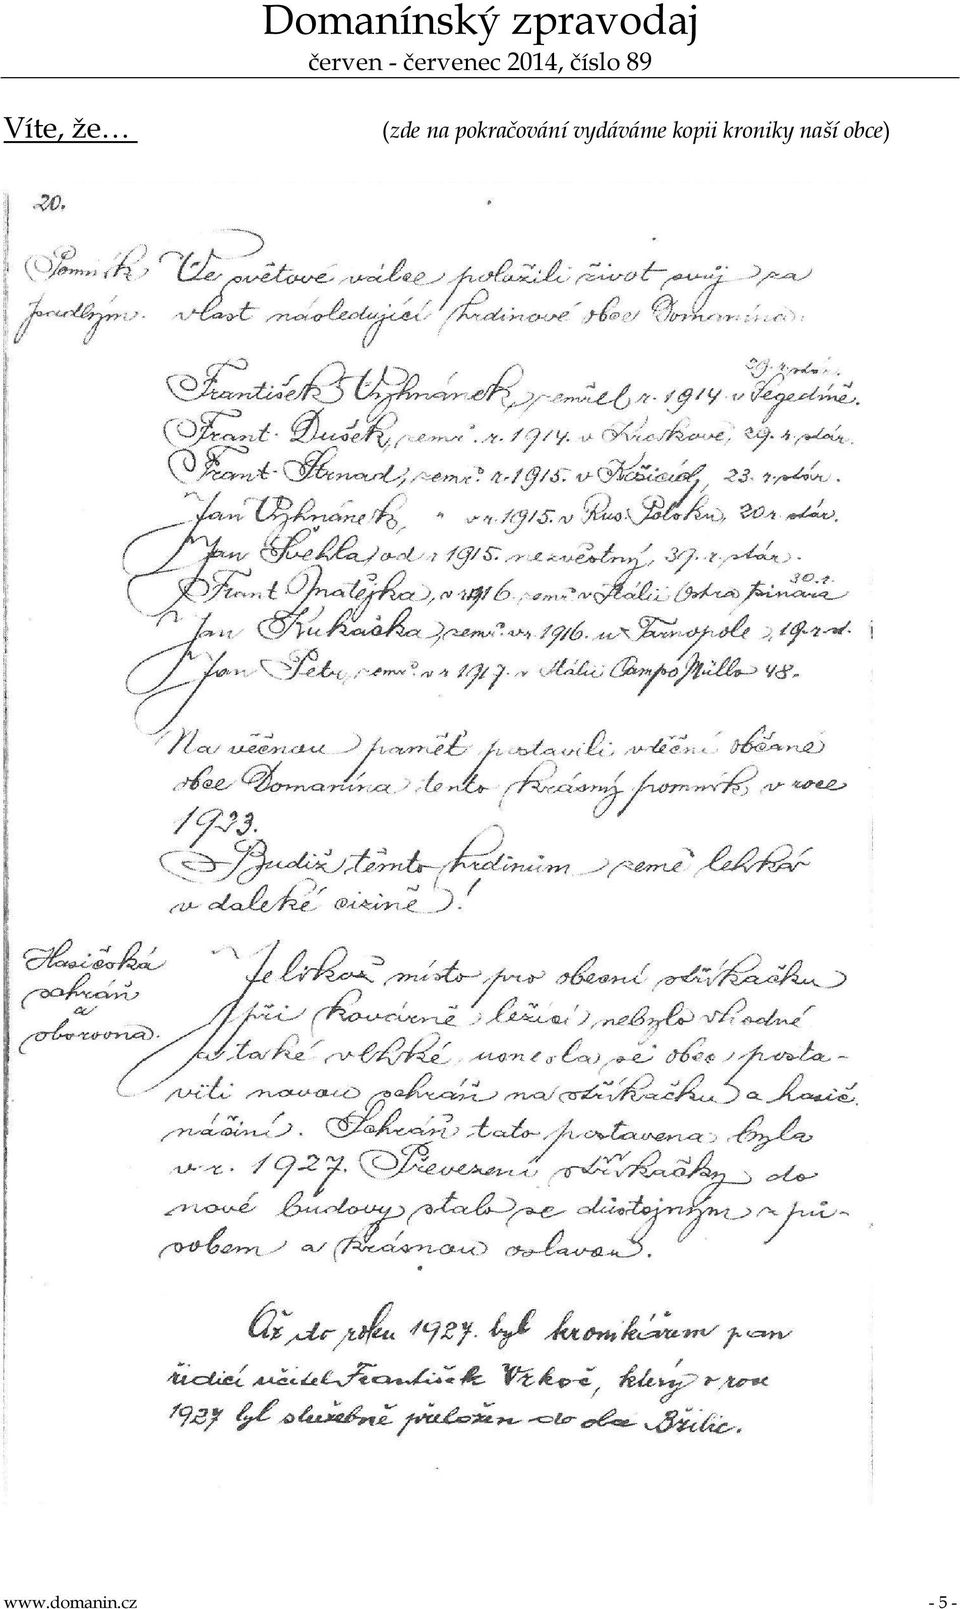 Domanínský zpravodaj
červen - červenec 2014, číslo 89
Víte, že… (zde na pokračování vydáváme kopii kroniky naší obce)
20.
Pomník Ve světové válce položili život svůj za
padlým. vlast následující hrdinové obce Domanína:
29. r. stár.
František Vyhnánek, zemřel r. 1914 v Segedíně.
Frant. Dušek, zemř. r. 1914. v Krakově, 29. r. stár.
Frant. Strnad, zemř. r. 1915. v Košicích, 23. r. stár.
Jan Vyhnánek, " v r. 1915. v Rus. Polsku, 20 r. stár.
Jan Švehla od r 1915. nezvěstný, 37. r. stár.
30. r.
Frant Matějka, v r. 1916. zemř. v Itálii Ostra
Jan Kukačka, zemř. v r. 1916. u Tarnopole, 19. r. st.
Jan Petr, zemř. v r 1917. v Itálii Campo Müllo 48.
Na věčnou paměť postavili vděční občané
obce Domanína tento krásný pomník, v roce
1923.
Budiž těmto hrdinům země lehká
v daleké cizině!
Hasičská Jelikož místo pro obecní stříkačku
schráň při kovárně ležící nebylo vhodné
a
zbrojna. a také vlhké usnesla se obec posta-
viti novou schráň na stříkačku a hasič.
náčiní. Schráň tato postavena byla
v r. 1927. Převezení stříkačky do
nové budovy stalo se důstojným způ-
sobem a krásnou oslavou.
Až do roku 1927. byl kronikářem pan
řidící učitel František Vrkoč, který v roce
1927 byl služebně přeložen do obce Bžilic.
www.domanin.cz - 5 -